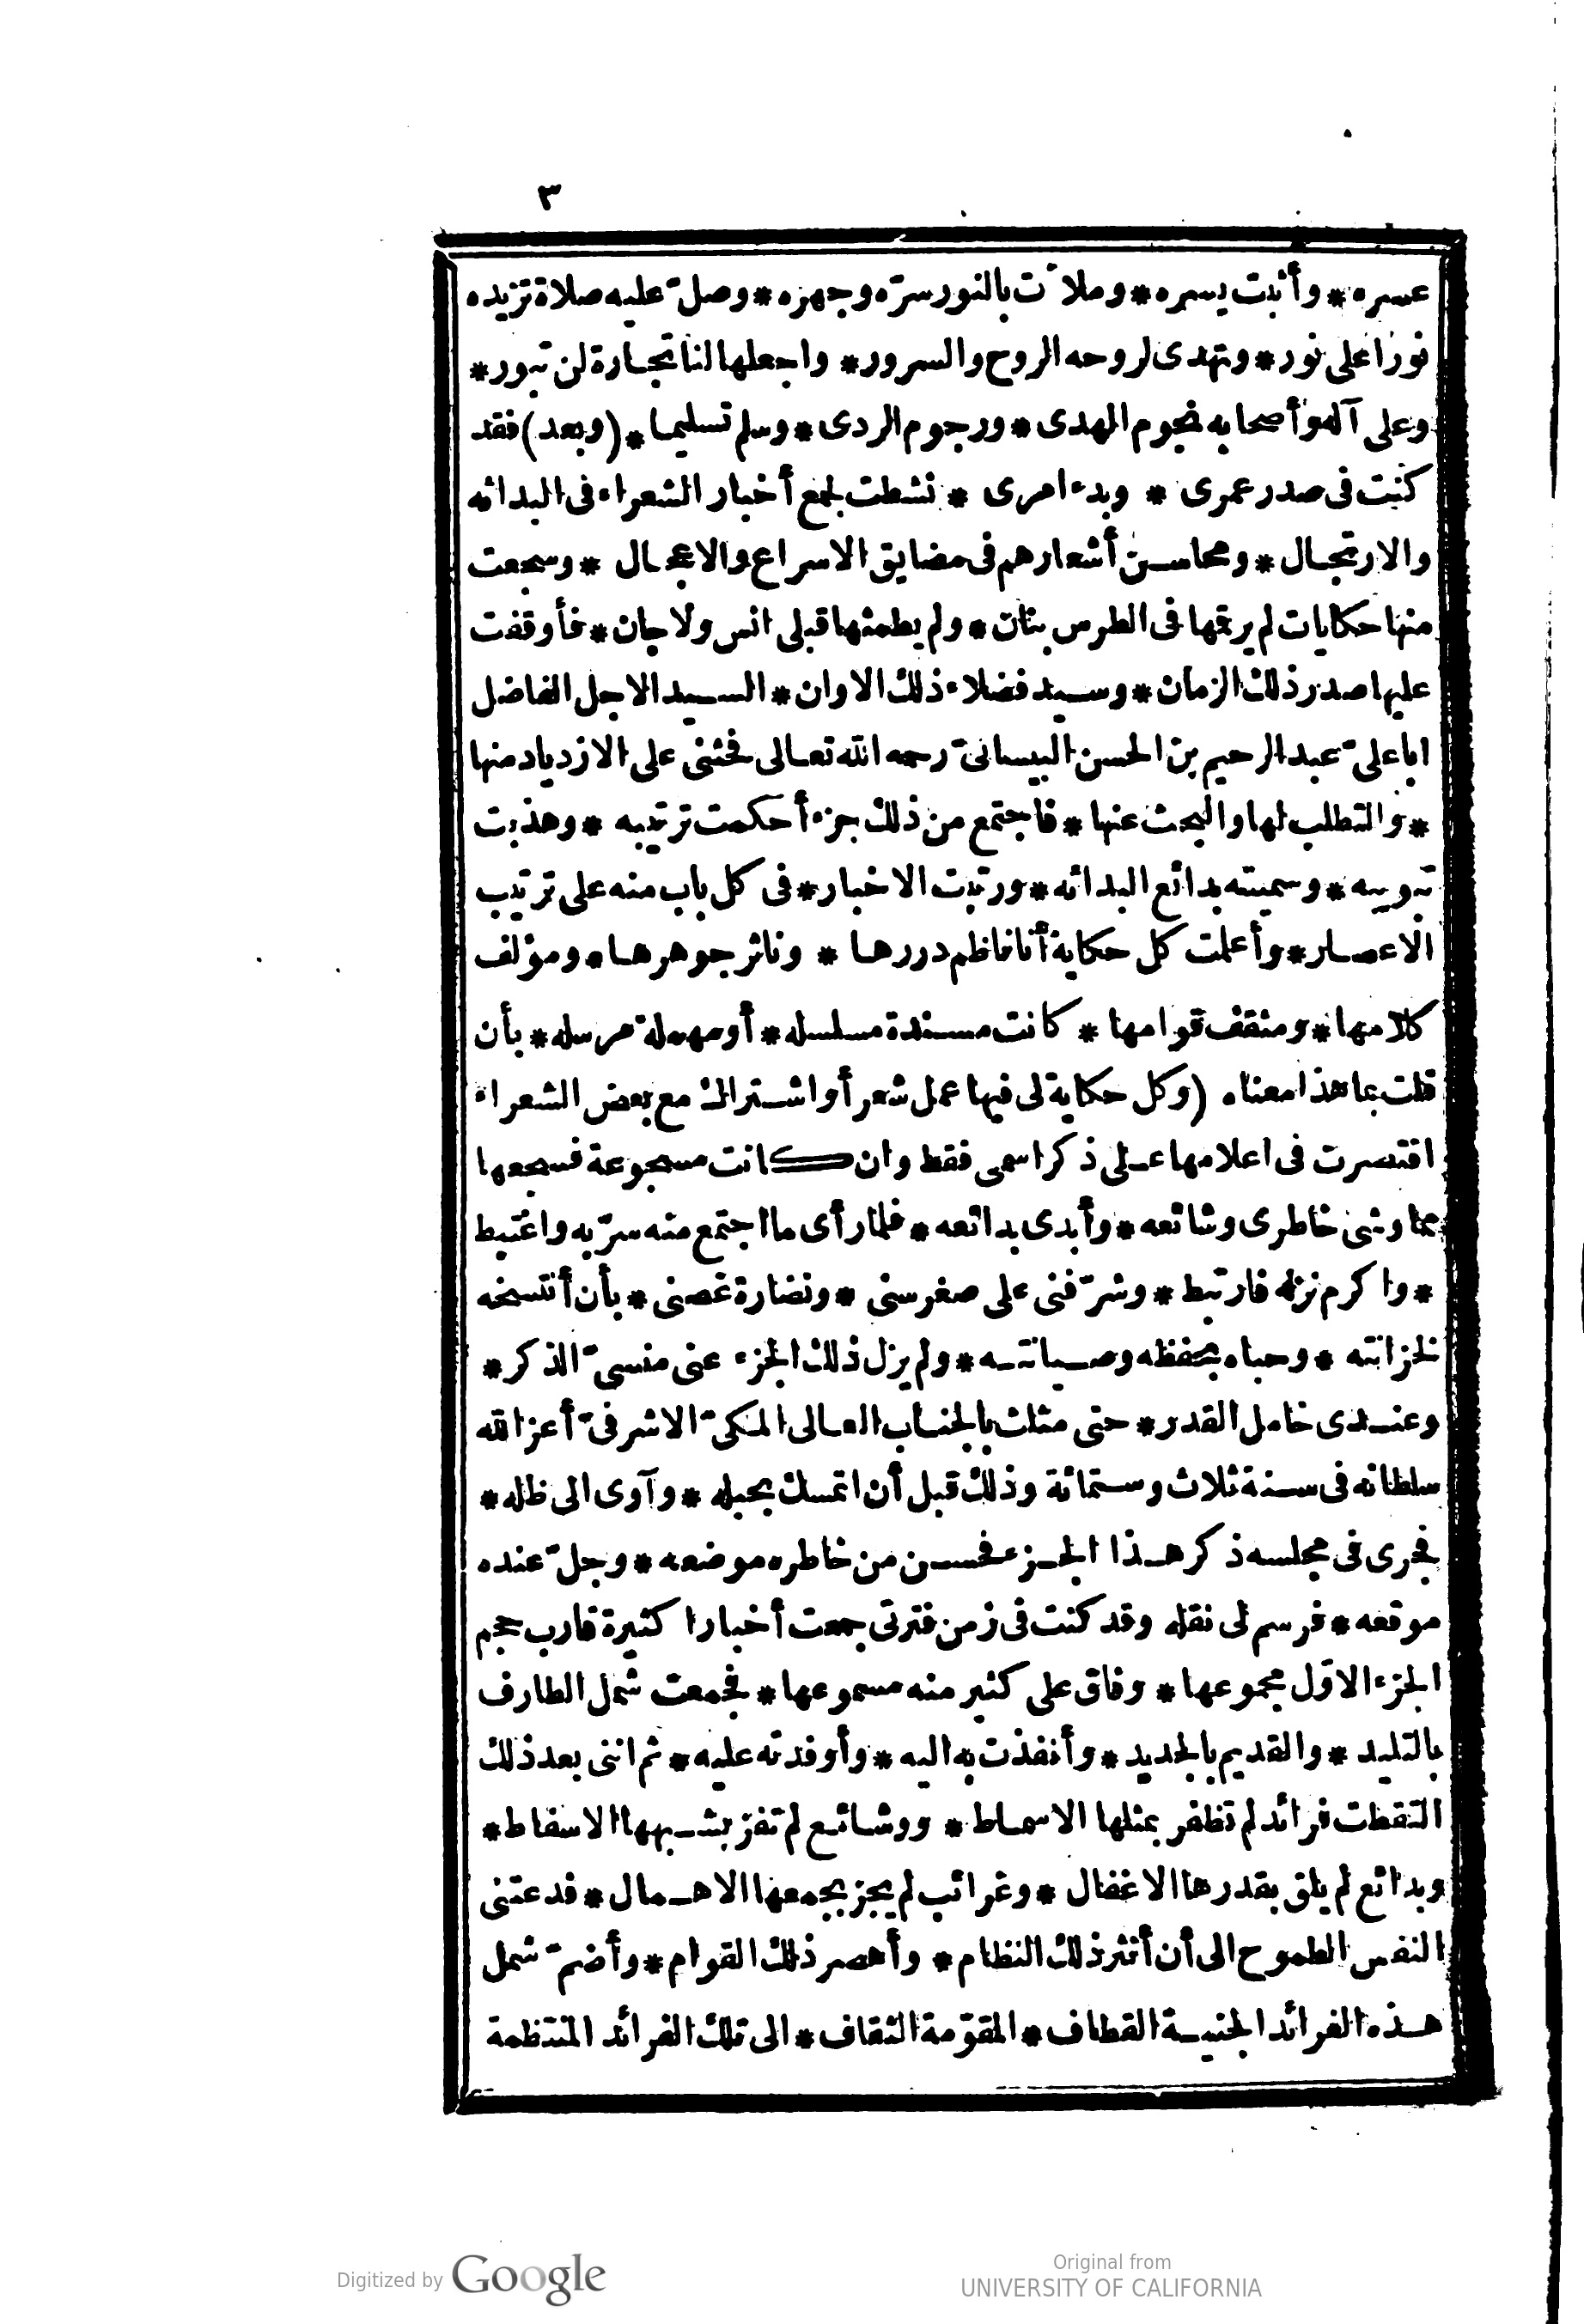 ٣
عسره * وأثبت يسره * وملأت بالنور سرّه وجهره * وصلّ عليه صلاة تزيده
نورا على نور * وتهدى لروحه الروح والسرور * واجعلها لنا تجارة لن تبور *
وعلى آله وأصحابه نجوم الهدى * ورجوم الردى * وسلم تسليما * (وبعد) فقد
كنت فى صدر عمرى * وبدء امرى * نشطت لجمع أخبار الشعراء فى البدائه
والارتجال * ومحاسن أشعارهم فى مضايق الاسراع والاعجال * وسمعت
منها حكايات لم يرقمها فى الطرس بنان * ولم يطمثها قبلى انس ولا جان * فأوقفت
عليها صدر ذلك الزمان * وسيد فضلاء ذلك الاوان * السيد الاجل الفاضل
اباعلىّ عبد الرحيم بن الحسن البيسانىّ رحمه الله تعالى فحثنى على الازدياد منها
* والتطلب لها والبحث عنها * فاجتمع من ذلك جزء أحكمت ترتيبه * وهذبت
تبويبه * وسميته بدائع البدائه * ورتبت الاخبار * فى كل باب منه على ترتيب
الاعصار * وأعلمت كل حكاية أنا ناظم دررها * وناثر جوهرها * ومؤلف
كلامها * ومثقف قوامها * كانت مسندة مسلسله * أو مهملة مرسله * بأن
قلت بما هذا معناه (وكل حكاية لى فيها عمل شعر أو اشتراك مع بعض الشعراء
اقتصرت فى اعلامها على ذكر اسمى فقط وان كانت مسجوعة فسجعها
مما وشى خاطرى وشائعه * وأبدى بدائعه * فلما رأى ما اجتمع منه سرّ به واغتبط
* واكرم نزله فارتبط * وشرّفنى على صغر سنى * ونضارة غصنى * بأن أنتسخه
لخزانته * وحباه بحفظه وصيانته * ولم يزل ذلك الجزء عنى منسىّ الذكر *
وعندى خامل القدر * حتى مثلت بالجناب العالى الملكىّ الاشرفىّ أعز الله
سلطانه فى سنة ثلاث وستمائة وذلك قبل أن اتمسك بحبله * وآوى الى ظله *
فجرى فى مجلسه ذكر هذا الجزء فحسن من خاطره موضعه * وجلّ عنده
موقعه * فرسم لى نقله وقد كنت فى زمن فترتى جمعت أخبارا كثيرة قارب حجم
الجزء الاوّل مجموعها * وفاق على كثير منه مسموعها * فجمعت شمل الطارف
بالتليد * والقديم بالجديد * وأنفذت به اليه * وأوفدته عليه * ثم اننى بعد ذلك
التقطت فرائد لم تظفر بمثلها الاسماط * ووشائع لم تفز بشبهها الاسفاط *
وبدائع لم يلق بقدرها الاغفال * وغرائب لم يجز بجمعها الاهمال * فدعتنى
النفس الطموح الى أن أنثر ذلك النظام * وأهصر ذلك القوام * وأضمّ شمل
هذه الفرائد الجنية القطاف * المقوّمة الثقاف * الى تلك الفرائد المنتظمة
Digitized by Google
Original from
UNIVERSITY OF CALIFORNIA